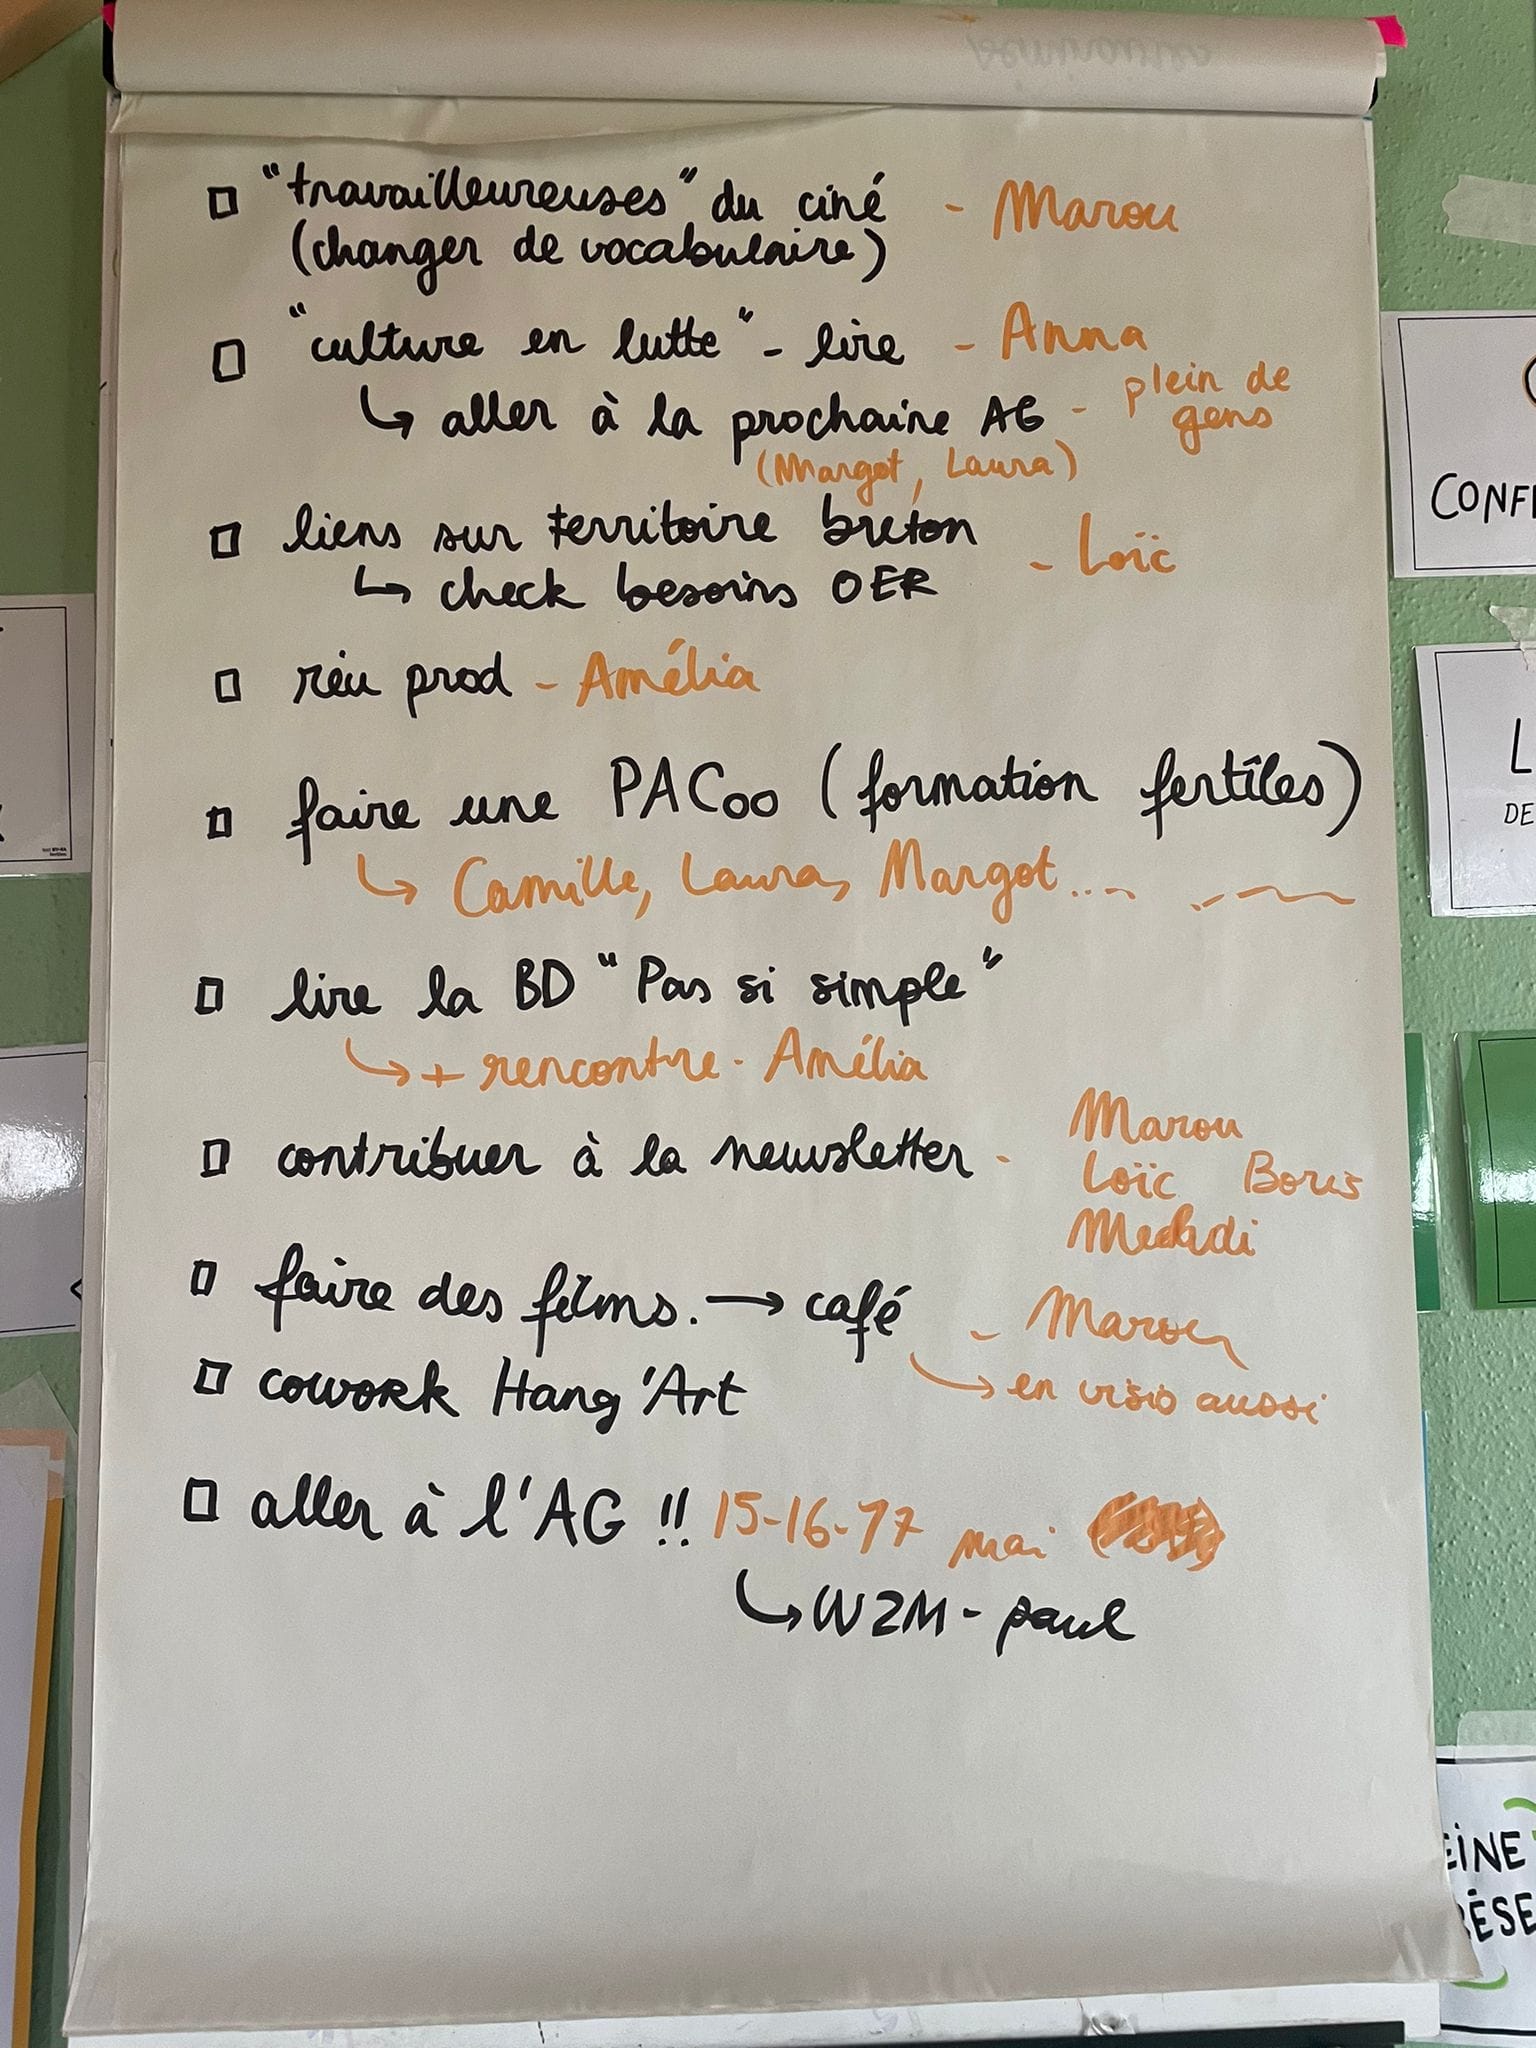 "travailleureuses" du ciné - Marou
(changer de vocabulaire)
"culture en lutte" - lire - Anna
↳ aller à la prochaine AG - plein de gens
(Margot, Laura)
liens sur territoire breton - Loïc
↳ check besoins OER
réu prod - Amélia
faire une PACoo (formation fertîles)
↳ Camille, Laura, Margot...
lire la BD "Pas si simple"
↳ + rencontre - Amélia
contribuer à la newsletter - Marou
Loïc Boris
Mehdi
faire des films. → café - Marou
↳ en visio aussi
cowork Hang'Art
aller à l'AG !! 15-16-17 mai
↳ W2M - paul
CONF
L
DE
EINE
ÉSE